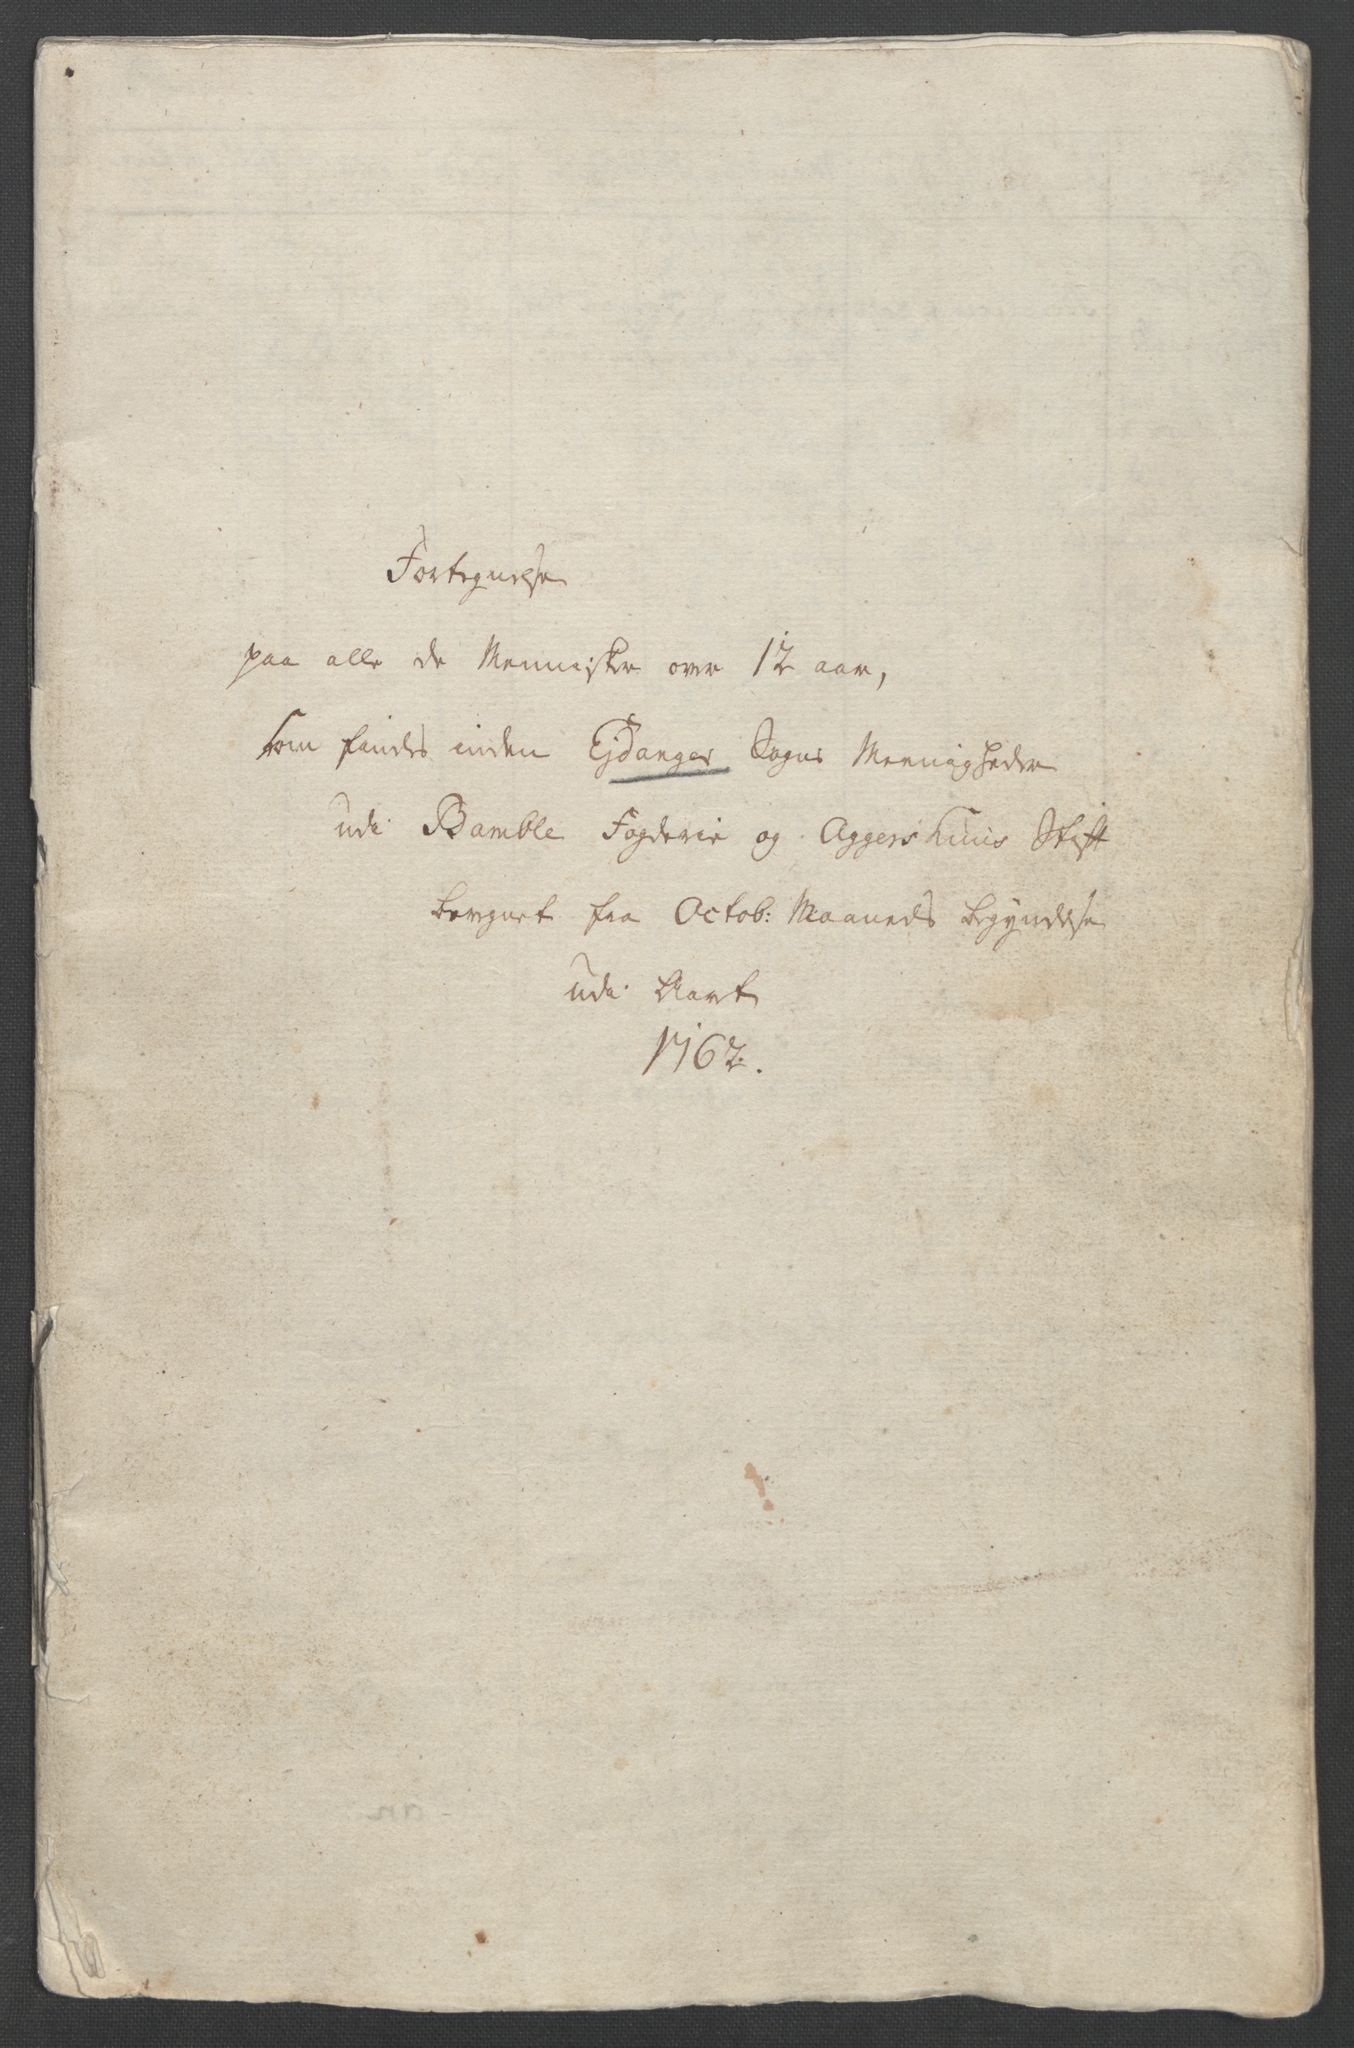 Fortegnelse
paa alle de Mennisker over 12 aar,
som findes inden Ejdanger Sogns Meenigheder
udi Bamble Fogderie og Aggershuus Stift
beregnet fra Octob: Maaneds begyndelse
udi Aaret
1762.